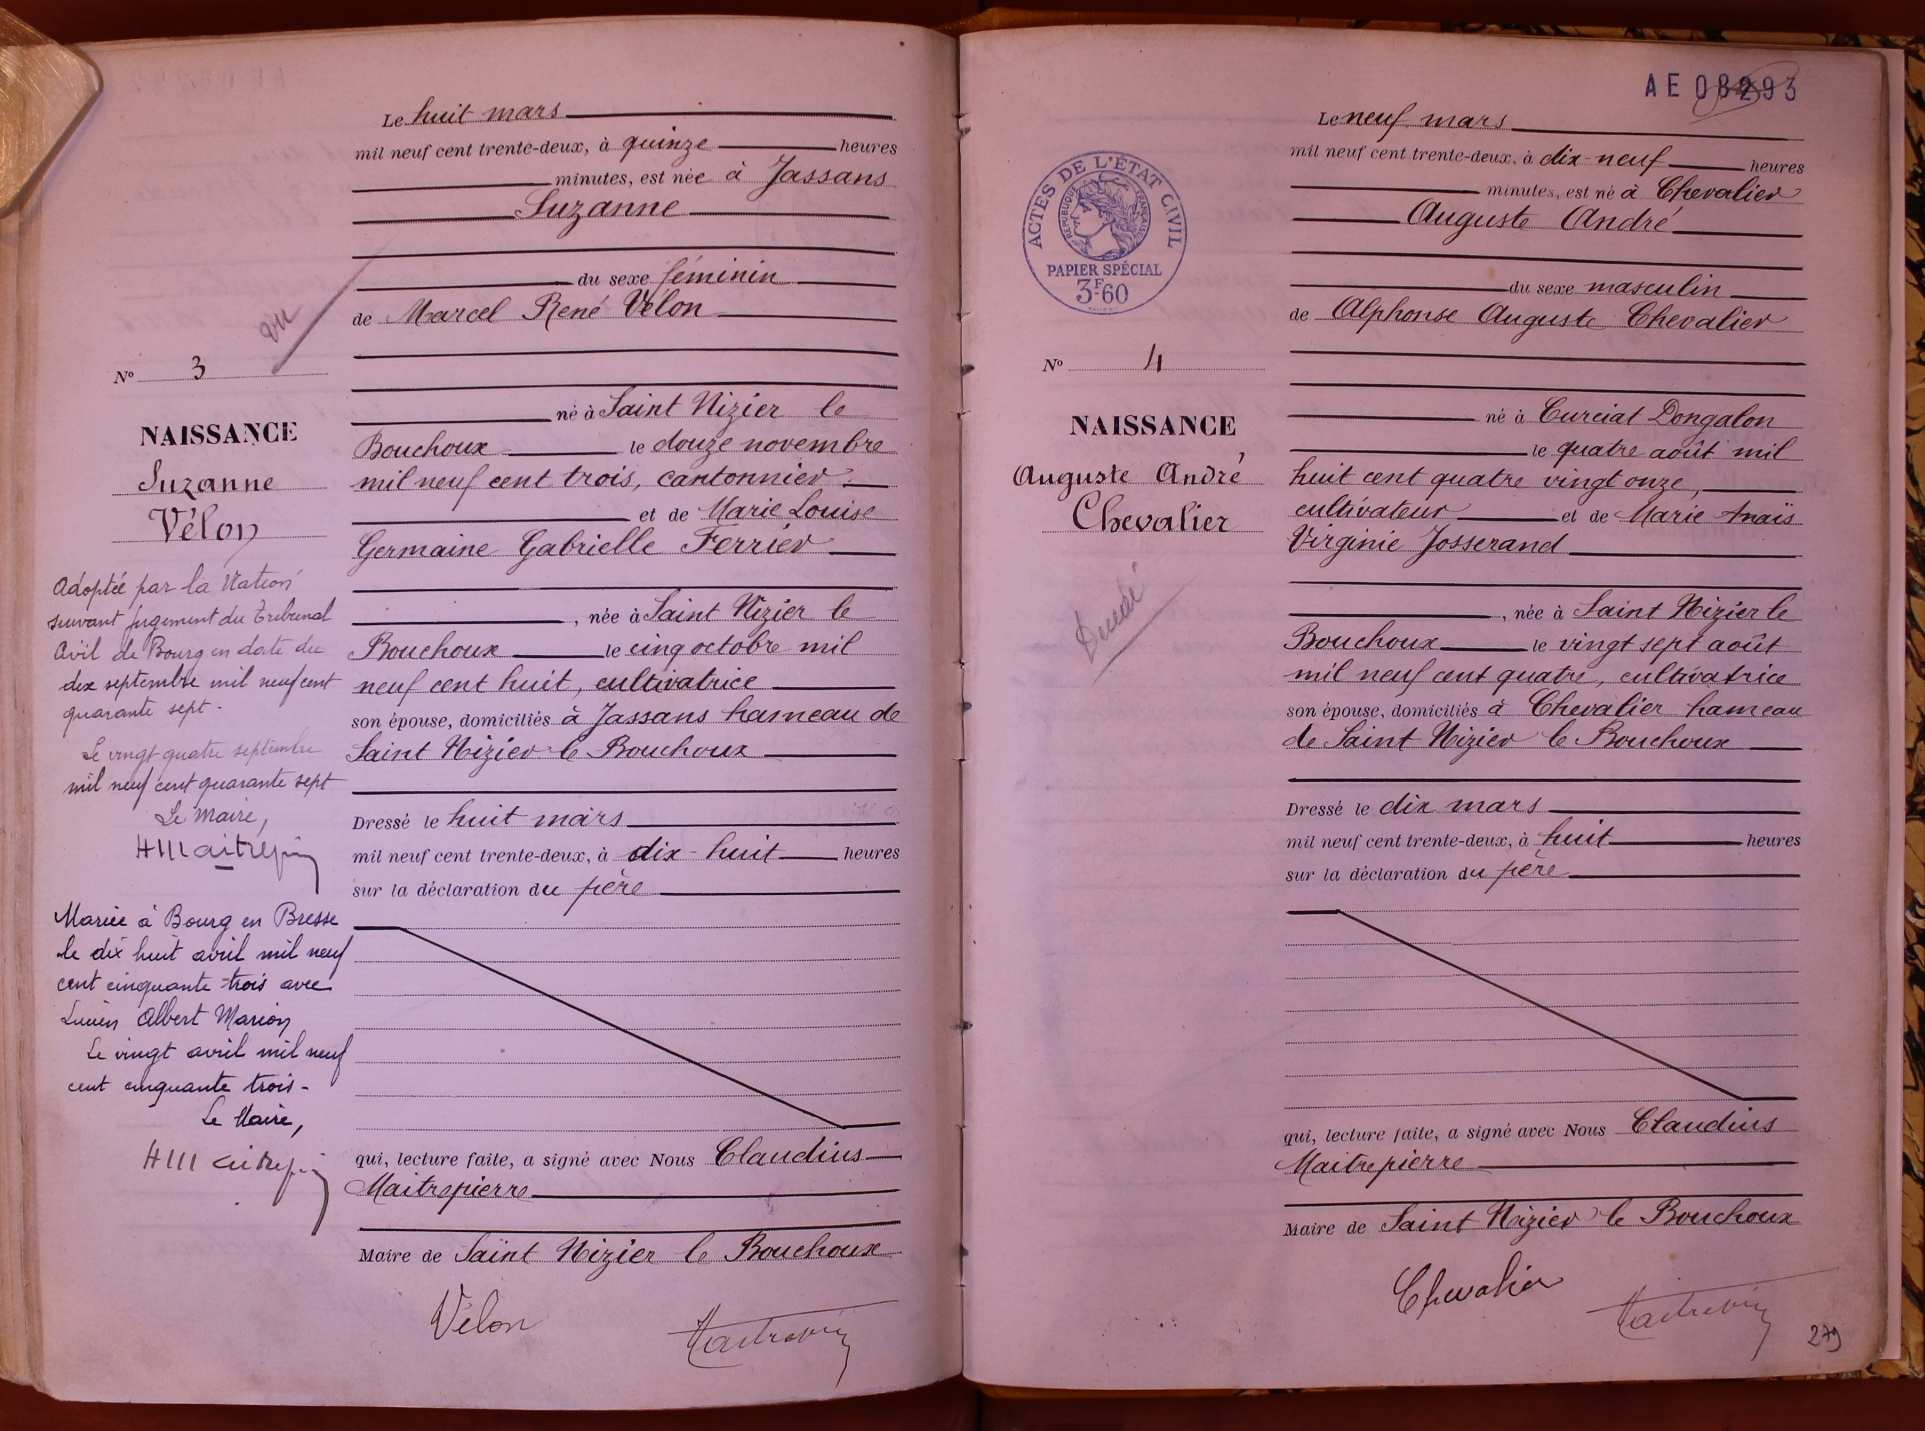 Le huit mars
mil neuf cent trente-deux, à quinze heures
minutes, est née à Jassans
Suzanne
du sexe féminin
de Marcel René Vélon
né à Saint Nizier le
Bouchoux le douze novembre
mil neuf cent trois, cantonnier
et de Marie Louise
Germaine Gabrielle Ferrier
, née à Saint Nizier le
Bouchoux le cinq octobre mil
neuf cent huit, cultivatrice
son épouse, domiciliés à Jassans hameau de
Saint Nizier le Bouchoux
Dressé le huit mars
mil neuf cent trente-deux, à dix-huit heures
sur la déclaration du père
qui, lecture faite, a signé avec Nous Claudius
Maitrepierre
Maire de Saint Nizier le Bouchoux
Vélon
vu
No 3
NAISSANCE
Suzanne
Vélon
Adoptée par la Nation
suivant jugement du Tribunal
Civil de Bourg en date du
dix septembre mil neuf cent
quarante sept.
Le vingt quatre septembre
mil neuf cent quarante sept
Le Maire,
Mariée à Bourg en Bresse
le dix huit avril mil neuf
cent cinquante trois avec
Lucien Albert Marion
Le vingt avril mil neuf
cent cinquante trois-
Le Maire,
AE 08293
Le neuf mars
mil neuf cent trente-deux, à dix-neuf heures
minutes, est né à Chevalier
Auguste André
du sexe masculin
de Alphonse Auguste Chevalier
né à Curciat Dongalon
le quatre août mil
huit cent quatre vingt onze,
cultivateur et de Marie Anaïs
Virginie Josserand
, née à Saint Nizier le
Bouchoux le vingt sept août
mil neuf cent quatre, cultivatrice
son épouse, domiciliés à Chevalier hameau
de Saint Nizier le Bouchoux
Dressé le dix mars
mil neuf cent trente-deux, à huit heures
sur la déclaration du père
qui, lecture faite, a signé avec Nous Claudius
Maitrepierre
Maire de Saint Nizier le Bouchoux
Chevalier
279
ACTES DE L'ÉTAT CIVIL
RÉPUBLIQUE FRANÇAISE
PAPIER SPÉCIAL
3F60
No 4
NAISSANCE
Auguste André
Chevalier